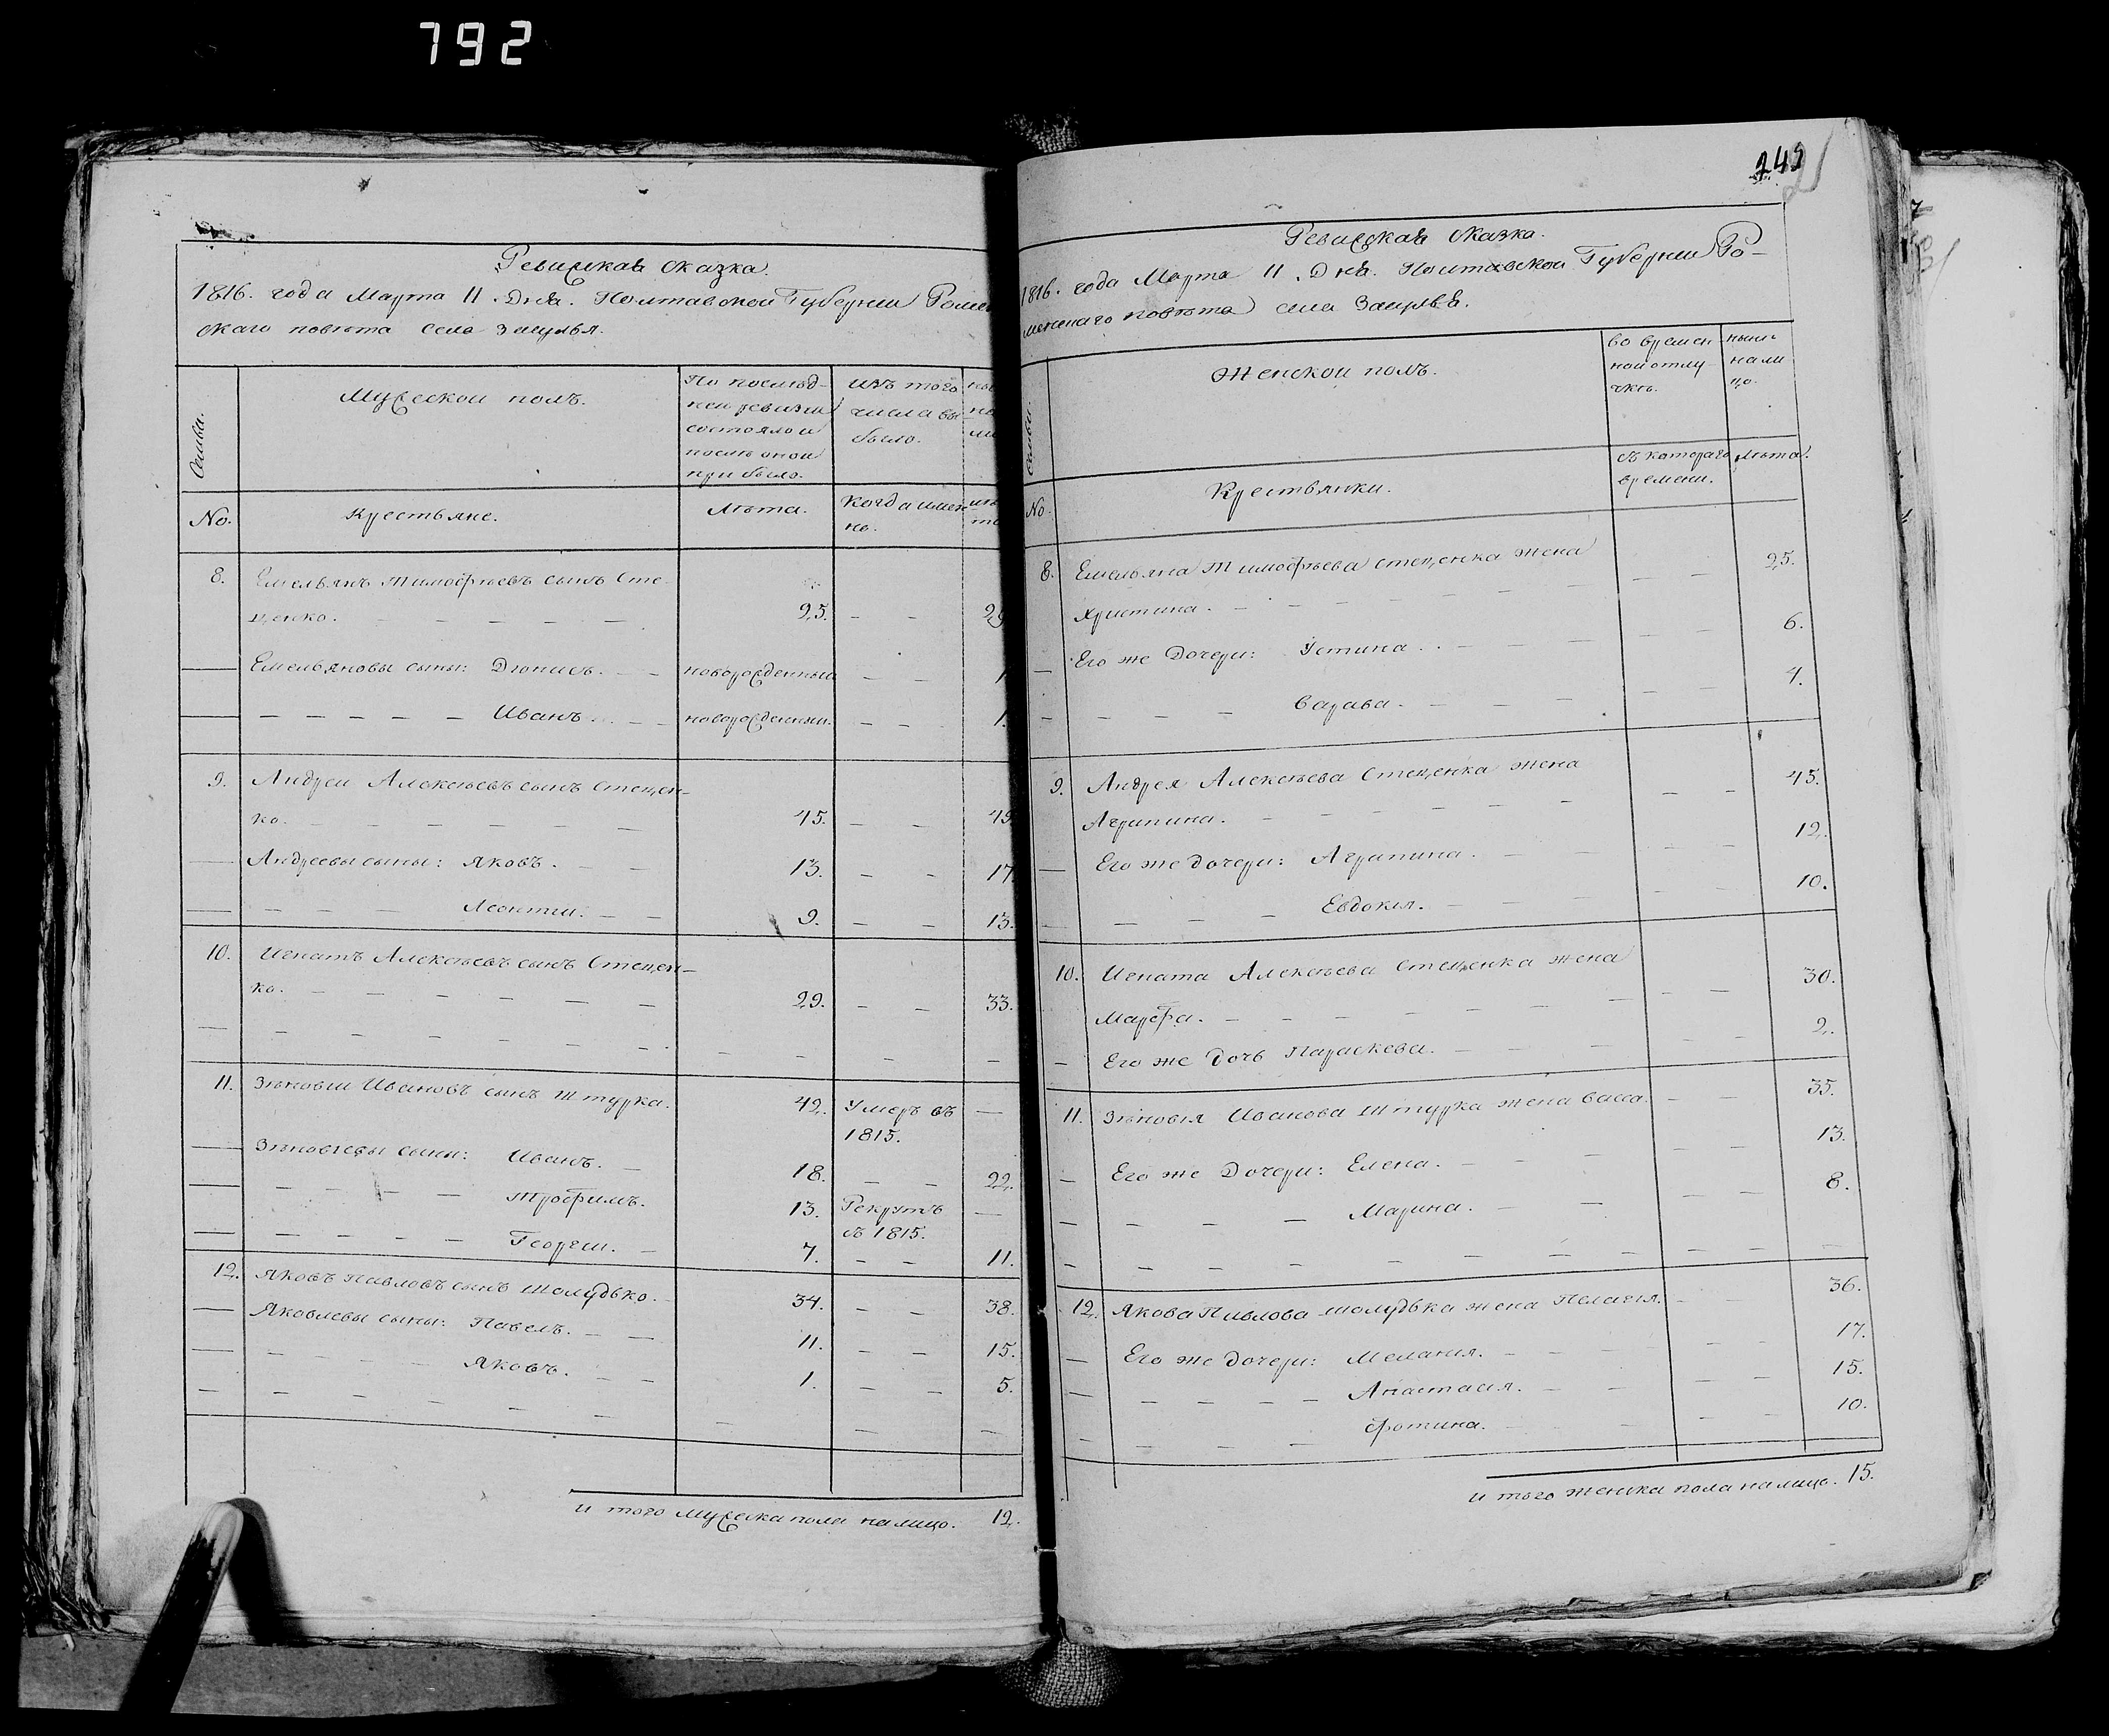 792
Ревизская сказка.
1816. года Марта 11. Дня. Полтавской Губернии Ромен
скаго повѣта села Засулья.
Семьи.
Мужеской полъ.
По послѣд-
ней ревизіи
состояло и
послѣ оной
прибыло.
изъ того
числа вы
было.
No.
Крестьяне.
Лѣта.
Когда имен
но.
8. Емельянъ Тимофѣевъ сынъ Сте-
ценко. 25.
Емельяновы сыны: Дionисъ. новорожденный
Иванъ. новорожденный. 1.
9. Андрей Алексѣевъ сынъ Стецен-
ко. 45. 49
Андреевы сыны: Яковъ. 13. 17.
Леонтій. 9. 13.
10. Игнатъ Алексѣевъ сынъ Стецен-
ко. 29. 33.
11. Зѣновій Ивановъ сынъ Штурка. 42. Умеръ въ
1815.
Зѣновіевы сыны: Иванъ. 18. 22.
Трофимъ. 13. Рекрутъ
въ 1815.
Георгій. 7. 11.
12. Яковъ Павловъ сынъ Шолудько. 34. 38.
Яковлевы сыны: Павелъ. 11. 15.
Яковъ. 1. 5.
и того мужеска пола налицо. 12.
242
Ревизская сказка.
1816. года Марта 11. Дня. Полтавской Губернии Ро-
менскаго повѣта села Засулья.
Семьи.
Женской полъ.
во времен
ной отлу-
чкѣ.
нынѣ
нали
цо.
No.
Крестьянки.
съ котораго
времени.
лѣта.
8. Емельяна Тимофѣева стеценка жена
Христина. 25.
Его же Дочери: Устина. 6.
Варвара. 4.
9. Андрея Алексѣева Стеценка жена
Агрипина. 45.
Его же дочери: Агрипина. 12.
Евдокія. 10.
10. Игната Алексѣева Стеценка жена
Марфа. 30.
Его же дочь Параскева. 2.
11. Зѣновія Иванова Штурка жена Васса. 35.
Его же Дочери: Елена. 13.
Марина. 8.
12. Якова Павлова шолудька жена Пелагія. 36.
Его же дочери: Меланія. 17.
Анастасія. 15.
Фотина. 10.
и того женска пола налицо. 15.